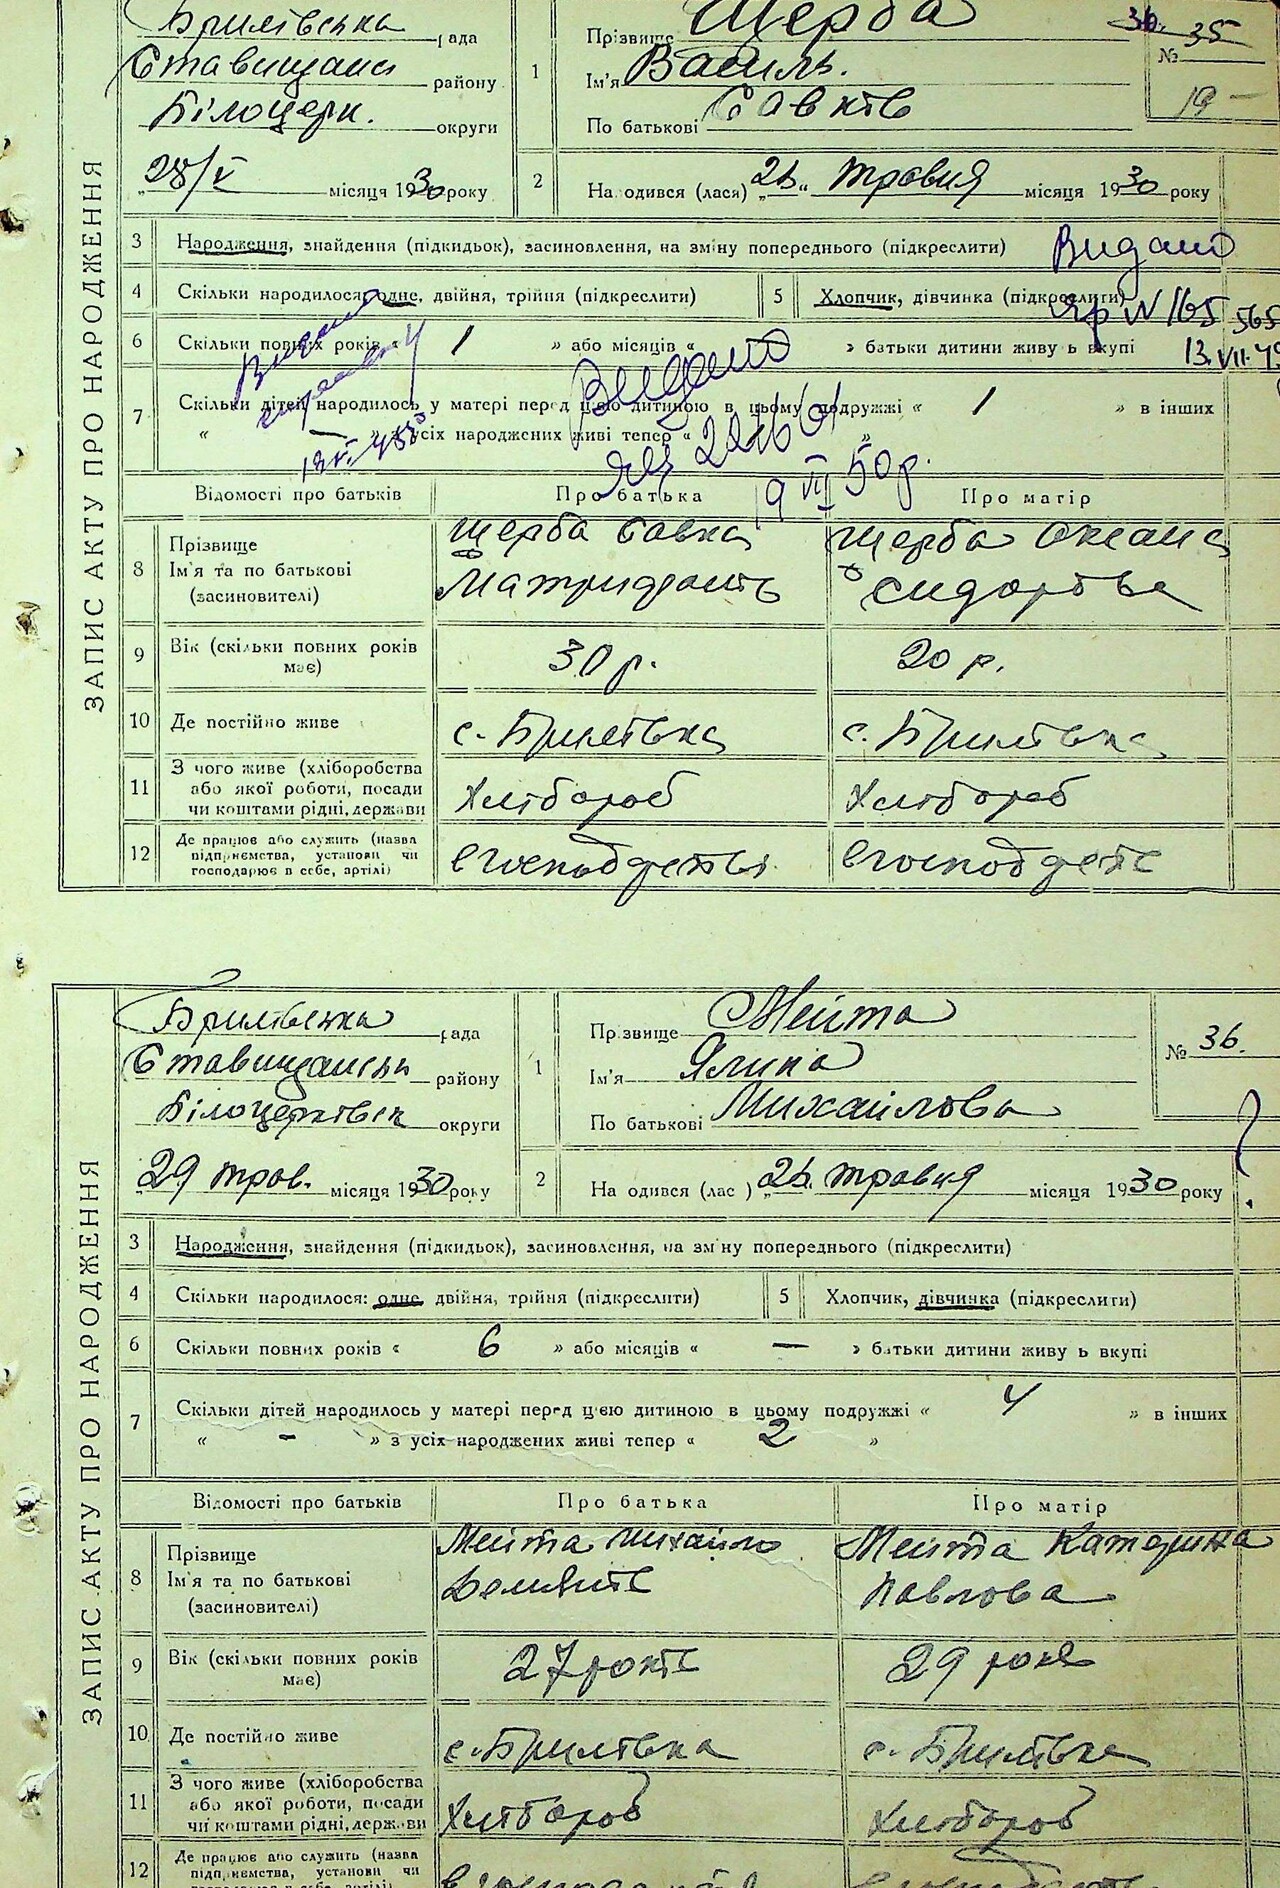 ЗАПИС АКТУ ПРО НАРОДЖЕННЯ
Брилівська рада
Ставищанс району
Білоцерк. округи
28/V місяця 1930 року
1 Прізвище Щерба
Ім'я Василь.
По батькові Савків
№ 35
19 –
2 На одився (лася) „ “ травня місяця 1930 року
3 Народження, знайдення (підкидьок), засиновлення, на зміну попереднього (підкреслити)
Видано
4 Скільки народилося: одне, двійня, трійня (підкреслити)
5 Хлопчик, дівчинка (підкреслити)
№ 165 565
13.VII.
6 Скільки повних років « 1 » або місяців « » батьки дитини живу ь вкупі
Видано
Видано
7 Скільки дітей народилось у матері перед цією дитиною в цьому подружжі « 1 » в інших
« — » з усіх народжених живі тепер « »
19 VII 50р.
Відомості про батьків Про батька Про матір
8 Прізвище
Ім'я та по батькові
(засиновителі)
Щерба Савка
Щерба Оксана
Сидорівна
9 Вік (скільки повних років має) 30 р. 20 р.
10 Де постійно живе с. Брилівка с. Брилівка
11 З чого живе (хліборобства
або якої роботи, посади
чи коштами рідні, держави
Хлібороб Хлібороб
12 Де працює або служить (назва
підприємства, установи чи
господарює в себе, артілі)
ЗАПИС АКТУ ПРО НАРОДЖЕННЯ
Брилівська рада
Ставищанськ району
Білоцерківськ округи
29 трав. місяця 1930 року
1 Прізвище Мейта
Ім'я Ялина
По батькові Михайлова
№ 36.
?
2 На одився (лас ) „ “ травня місяця 1930 року
3 Народження, знайдення (підкидьок), засиновлення, на зміну попереднього (підкреслити)
4 Скільки народилося: одне двійня, трійня (підкреслити)
5 Хлопчик, дівчинка (підкреслити)
6 Скільки повних років « 6 » або місяців « — » батьки дитини живу ь вкупі
7 Скільки дітей народилось у матері перед цією дитиною в цьому подружжі « 4 » в інших
« - » з усіх народжених живі тепер « 2 »
Відомості про батьків Про батька Про матір
8 Прізвище
Ім'я та по батькові
(засиновителі)
Мейта Михайло
Мейта Катерина
Павлова
9 Вік (скільки повних років має) 27 років 29 років
10 Де постійно живе с. Брилівка с. Брилівка
11 З чого живе (хліборобства
або якої роботи, посади
чи коштами рідні, держави
Хлібороб Хлібороб
12 Де працює або служить (назва
підприємства, установи чи